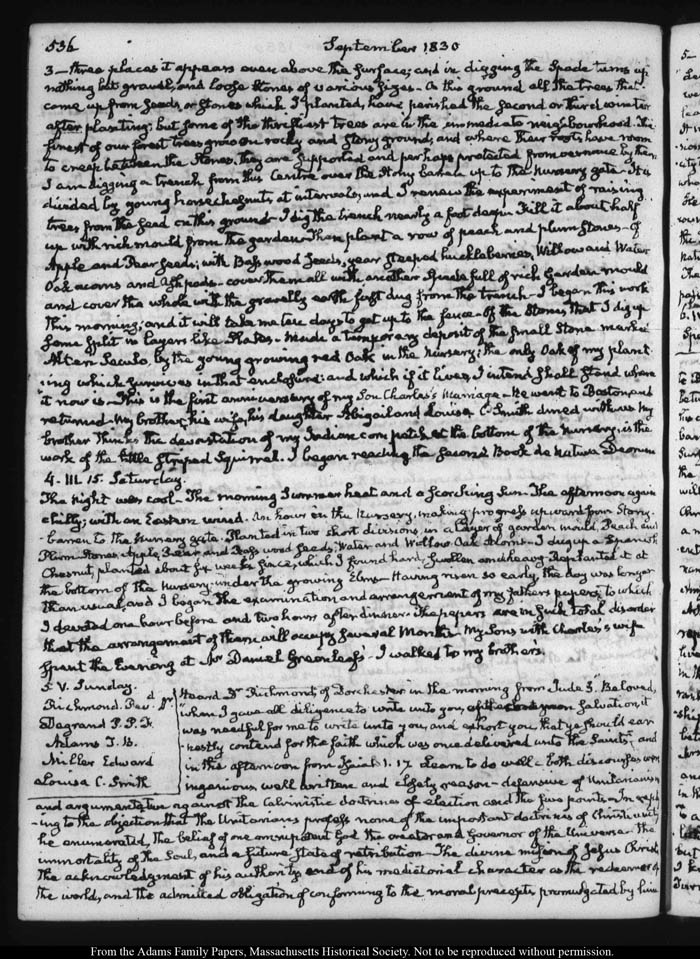 536 September 1830
3 – three places it appears even above the surface; and in digging the Spade turns up
nothing but gravel, and loose stones of various sizes – On this ground all the trees that
come up from seeds, or stones which I planted, have perished the second or third winter
after planting; but some of the thriftiest trees are in the immediate neighbourhood. The
finest of our forest trees grow on rocky and stony ground, and where their roots have room
to creep between the stones, they are supported and perhaps protected from by them
I am digging a trench from this Centre over the stony barren up to the nursery gate – It is
divided by young horsechesnuts at intervals, and I renew the experiment of raising
trees from the seed on this ground – I dig the trench nearly a foot deep – Fill it about half
up with rich mould from the garden – Then plant a row of peach and plum stones – of
Apple and Pear seeds; with Basswood seeds, year steeped huckleberries, Willow and Water
Oak acorns and Ash pods – cover them all with another spade full of rich garden mould
and cover the whole with the gravelly earth first dug from the trench – I began this work
this morning, and it will take me ten days to get up to the fence – Of the stones that I dig up
some split in layers like slates – Made a temporary deposit of the small stone marked
Alteri Seculo, by the young growing red Oak in the nursery; the only Oak of my plant-
-ing which survives in that enclosure: and which if it lives, I intend shall stand where
it now is – This is the first anniversary of my Son Charles's Marriage – He went to Boston, and
returned. My brother, his wife, his daughter Abigail and Louisa C. Smith dined with us. My
brother thinks the devastation of my Indian corn patch at the bottom of the nursery, is the
work of the little striped Squirrel. I began reading the second Book de Natura Deorum
4. III. 15. Saturday.
The night was cool – The morning Summer heat and a scorching Sun. The afternoon again
chilly, with an Eastern wind. An hour in the Nursery, making progress upward from Stony
barren to the Nursery gate. Planted in two short divisions, in a layer of garden mould, Peach and
Plum Stones, Apple, Pear and Bass wood seeds, Water and Willow Oak Acorns – I dug up a Spanish
Chesnut, planted about six weeks since, which I found hard, swollen and heavy. Replanted it at
the bottom of the nursery under the growing Elms – Having risen so early, the day was longer
than usual, and I began the examination and arrangement of my father's papers; to which
I devoted one hour before and two hours after dinner – The papers are in such total disorder
that the arrangement of them will occupy several Months – My Sons with Charles's wife
spent the Evening at Mr Daniel Greenleaf's – I walked to my brother's.
5. V. Sunday.
Richmond. Revd Dr
Degrand P. P. F.
Adams T. B.
Miller Edward
Louisa C. Smith
Heard Dr Richmond of Dorchester in the morning from Jude 3. "Beloved,
when I gave all diligence to write unto you, of the common salvation, it
was needful for me to write unto you, and exhort you, that ye should ear-
-nestly contend for the faith which was once delivered unto the Saints; and
in the afternoon from Isaiah 1. 17. Learn to do well – both discourses were
ingenious, well written and defensive of Unitarianism
and argumentative against the Calvinistic doctrines of election and the five points – In reply
-ing to the objection that the Unitarians profess none of the important doctrines of Christianity
he enumerated, the belief of one omnipotent God the creator and Governor of the Universe – The
immortality of the Soul, and a future State of retribution – The divine mission of Jesus Christ
the acknowledgment of his authority and of his mediatorial character as the redeemer of
the world, and the admitted obligation of conforming to the moral precepts promulgated by him
From the Adams Family Papers, Massachusetts Historical Society. Not to be reproduced without permission.